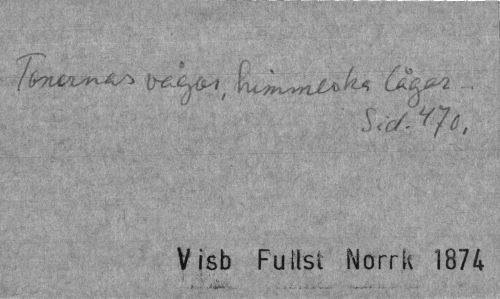 Tonernas vågor, himmelska lågor –
Sid. 470.
Visb Fullst Norrk 1874